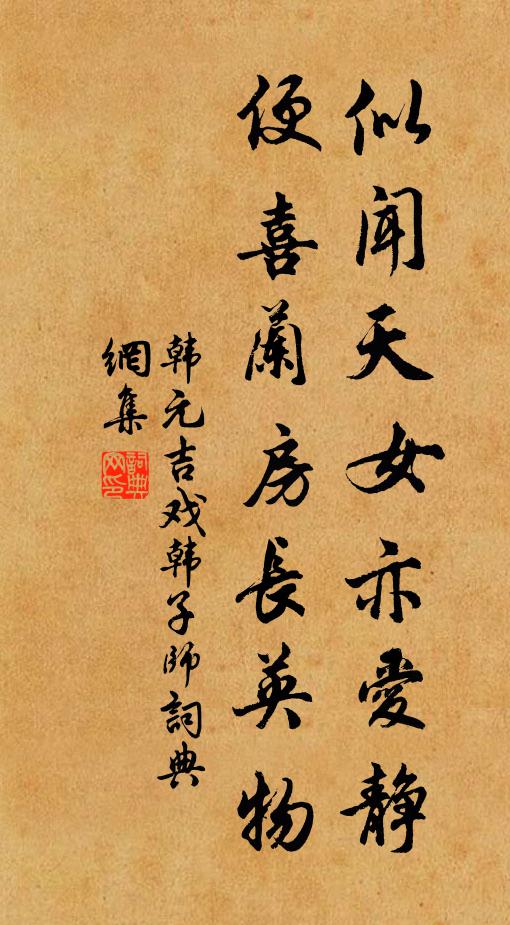 似闻天女亦愛静
便喜蘭房長英物
韩元吉戏韩子師詞典
網集
詞典网印